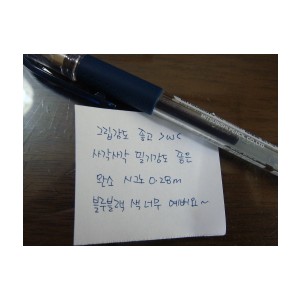 그립감도 좋고 >w<
사각사각 필기감도 좋은
완소 시그노 0.28m
블루블랙 색 너무 예뻐요~